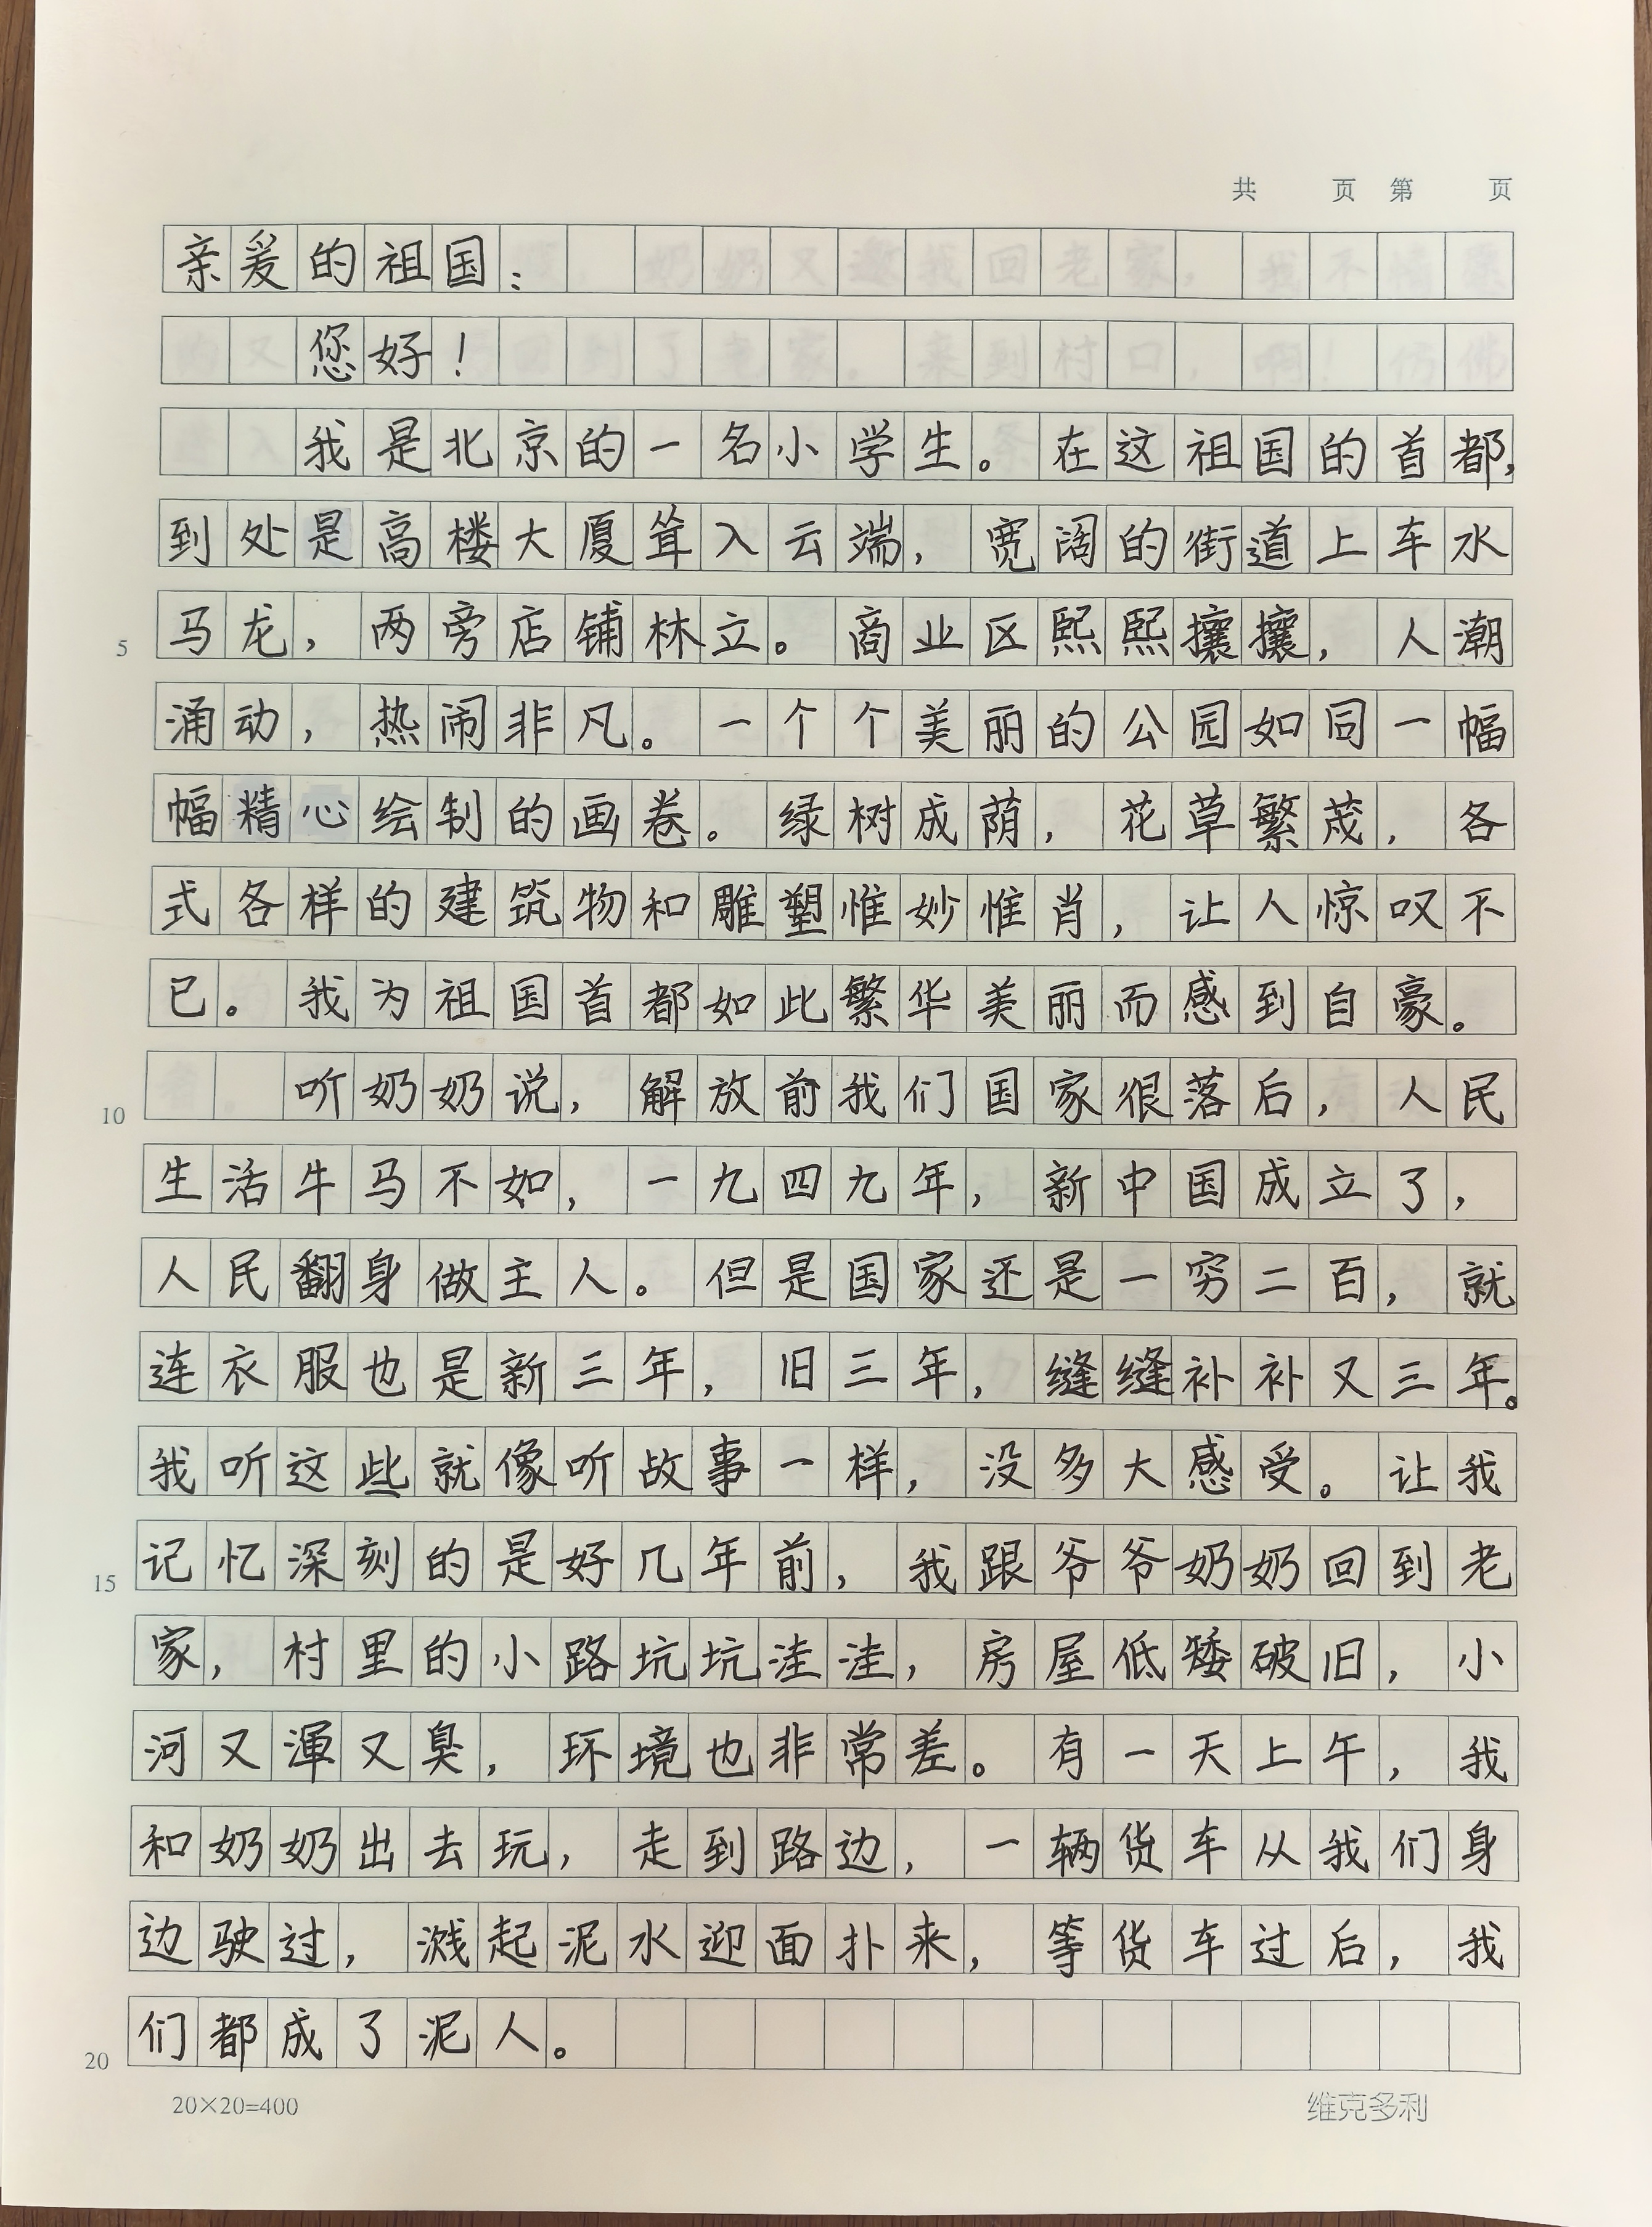 共 页 第 页
亲爱的祖国：
您好！
我是北京的一名小学生。在这祖国的首都，
到处是高楼大厦耸入云端，宽阔的街道上车水
5 马龙，两旁店铺林立。商业区熙熙攘攘，人潮
涌动，热闹非凡。一个个美丽的公园如同一幅
幅精心绘制的画卷。绿树成荫，花草繁茂，各
式各样的建筑物和雕塑惟妙惟肖，让人惊叹不
已。我为祖国首都如此繁华美丽而感到自豪。
10 听奶奶说，解放前我们国家很落后，人民
生活牛马不如，一九四九年，新中国成立了，
人民翻身做主人。但是国家还是一穷二百，就
连衣服也是新三年，旧三年，缝缝补补又三年。
我听这些就像听故事一样，没多大感受。让我
15 记忆深刻的是好几年前，我跟爷爷奶奶回到老
家，村里的小路坑坑洼洼，房屋低矮破旧，小
河又浑又臭，环境也非常差。有一天上午，我
和奶奶出去玩，走到路边，一辆货车从我们身
边驶过，溅起泥水迎面扑来，等货车过后，我
20 们都成了泥人。
20×20=400 维克多利